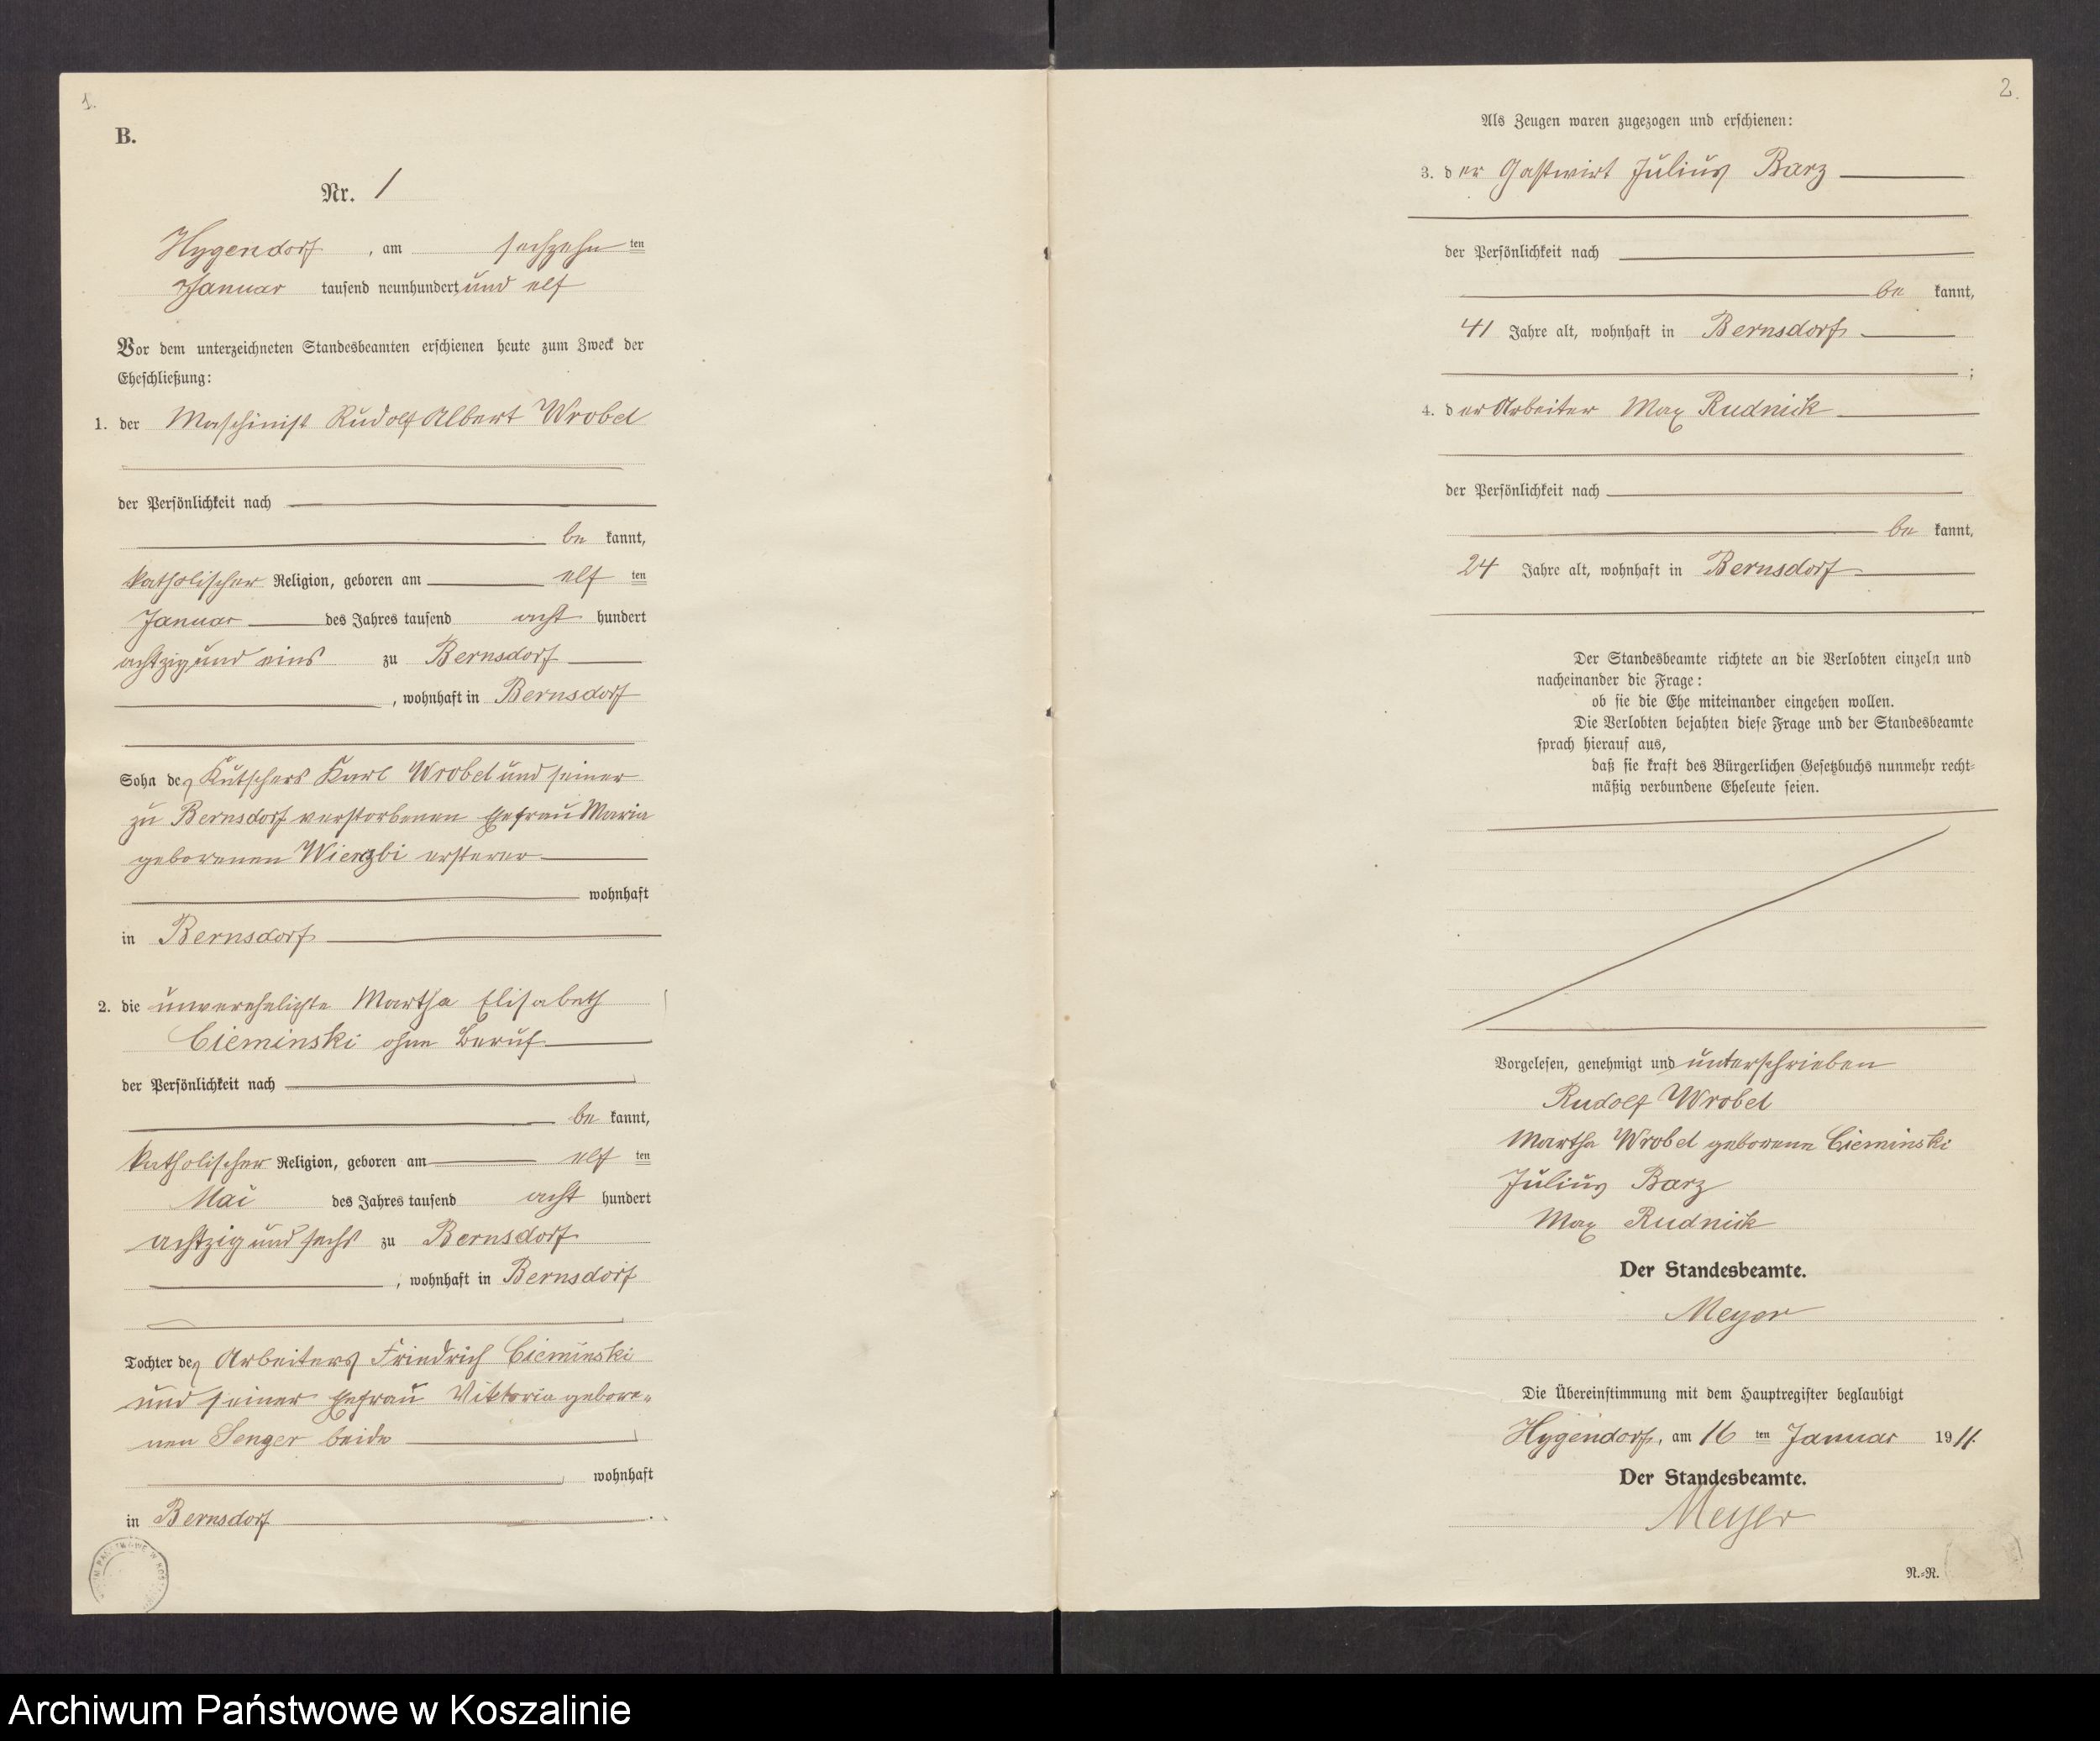 1.
B.
Nr. 1
Hygendorf, am sechzehn ten
Januar tausend neunhundert und elf
Vor dem unterzeichneten Standesbeamten erschienen heute zum Zweck der
Eheschließung:
1. der Maschinist Rudolf Albert Wrobel
der Persönlichkeit nach
be kannt,
katholischer Religion, geboren am elf ten
Januar des Jahres tausend acht hundert
achtzig und eins zu Bernsdorf
, wohnhaft in Bernsdorf
Sohn des Kutschers Karl Wrobel und seiner
zu Bernsdorf verstorbenen Ehefrau Maria
geborenen Wierzbi ersterer
wohnhaft
in Bernsdorf
2. die unverehelichte Martha Elisabeth
Cieminski ohne Beruf
der Persönlichkeit nach
be kannt,
katholischer Religion, geboren am elf ten
Mai des Jahres tausend acht hundert
achtzig und sechs zu Bernsdorf
, wohnhaft in Bernsdorf
Tochter des Arbeiters Friedrich Cieminski
und seiner Ehefrau Viktoria gebore-
nen Senger beide
wohnhaft
in Bernsdorf
2.
Als Zeugen waren zugezogen und erschienen:
3. der Gastwirt Julius Barz
der Persönlichkeit nach
be kannt,
41 Jahre alt, wohnhaft in Bernsdorf
;
4. der Arbeiter Max Rudnick
der Persönlichkeit nach
be kannt,
24 Jahre alt, wohnhaft in Bernsdorf
Der Standesbeamte richtete an die Verlobten einzeln und
nacheinander die Frage:
ob sie die Ehe miteinander eingehen wollen.
Die Verlobten bejahten diese Frage und der Standesbeamte
sprach hierauf aus,
daß sie kraft des Bürgerlichen Gesetzbuchs nunmehr recht-
mäßig verbundene Eheleute seien.
Vorgelesen, genehmigt und unterschrieben
Rudolf Wrobel
Martha Wrobel geborene Cieminski
Julius Barz
Max Rudnick
Der Standesbeamte.
Meyer
Die Übereinstimmung mit dem Hauptregister beglaubigt
Hygendorf, am 16 ten Januar 1911.
Der Standesbeamte.
Meyer
N.-N.
Archiwum Państwowe w Koszalinie